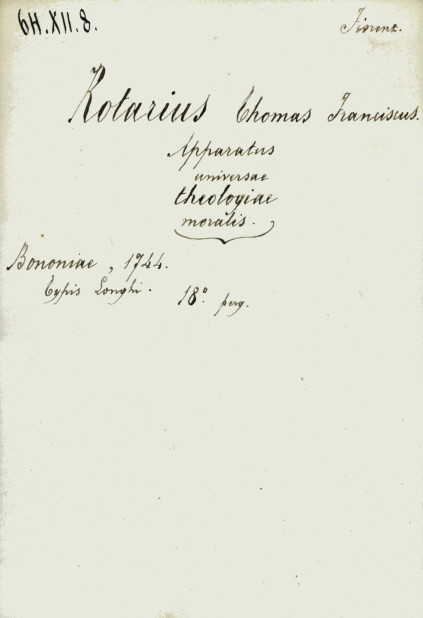 6H.XII.8.
Fiorenz.
Rotarius Thomas Franciscus.
Apparatus
universae
theologiae
moralis.
Bononiae, 1744.
Typis Longhi.
18° perg.